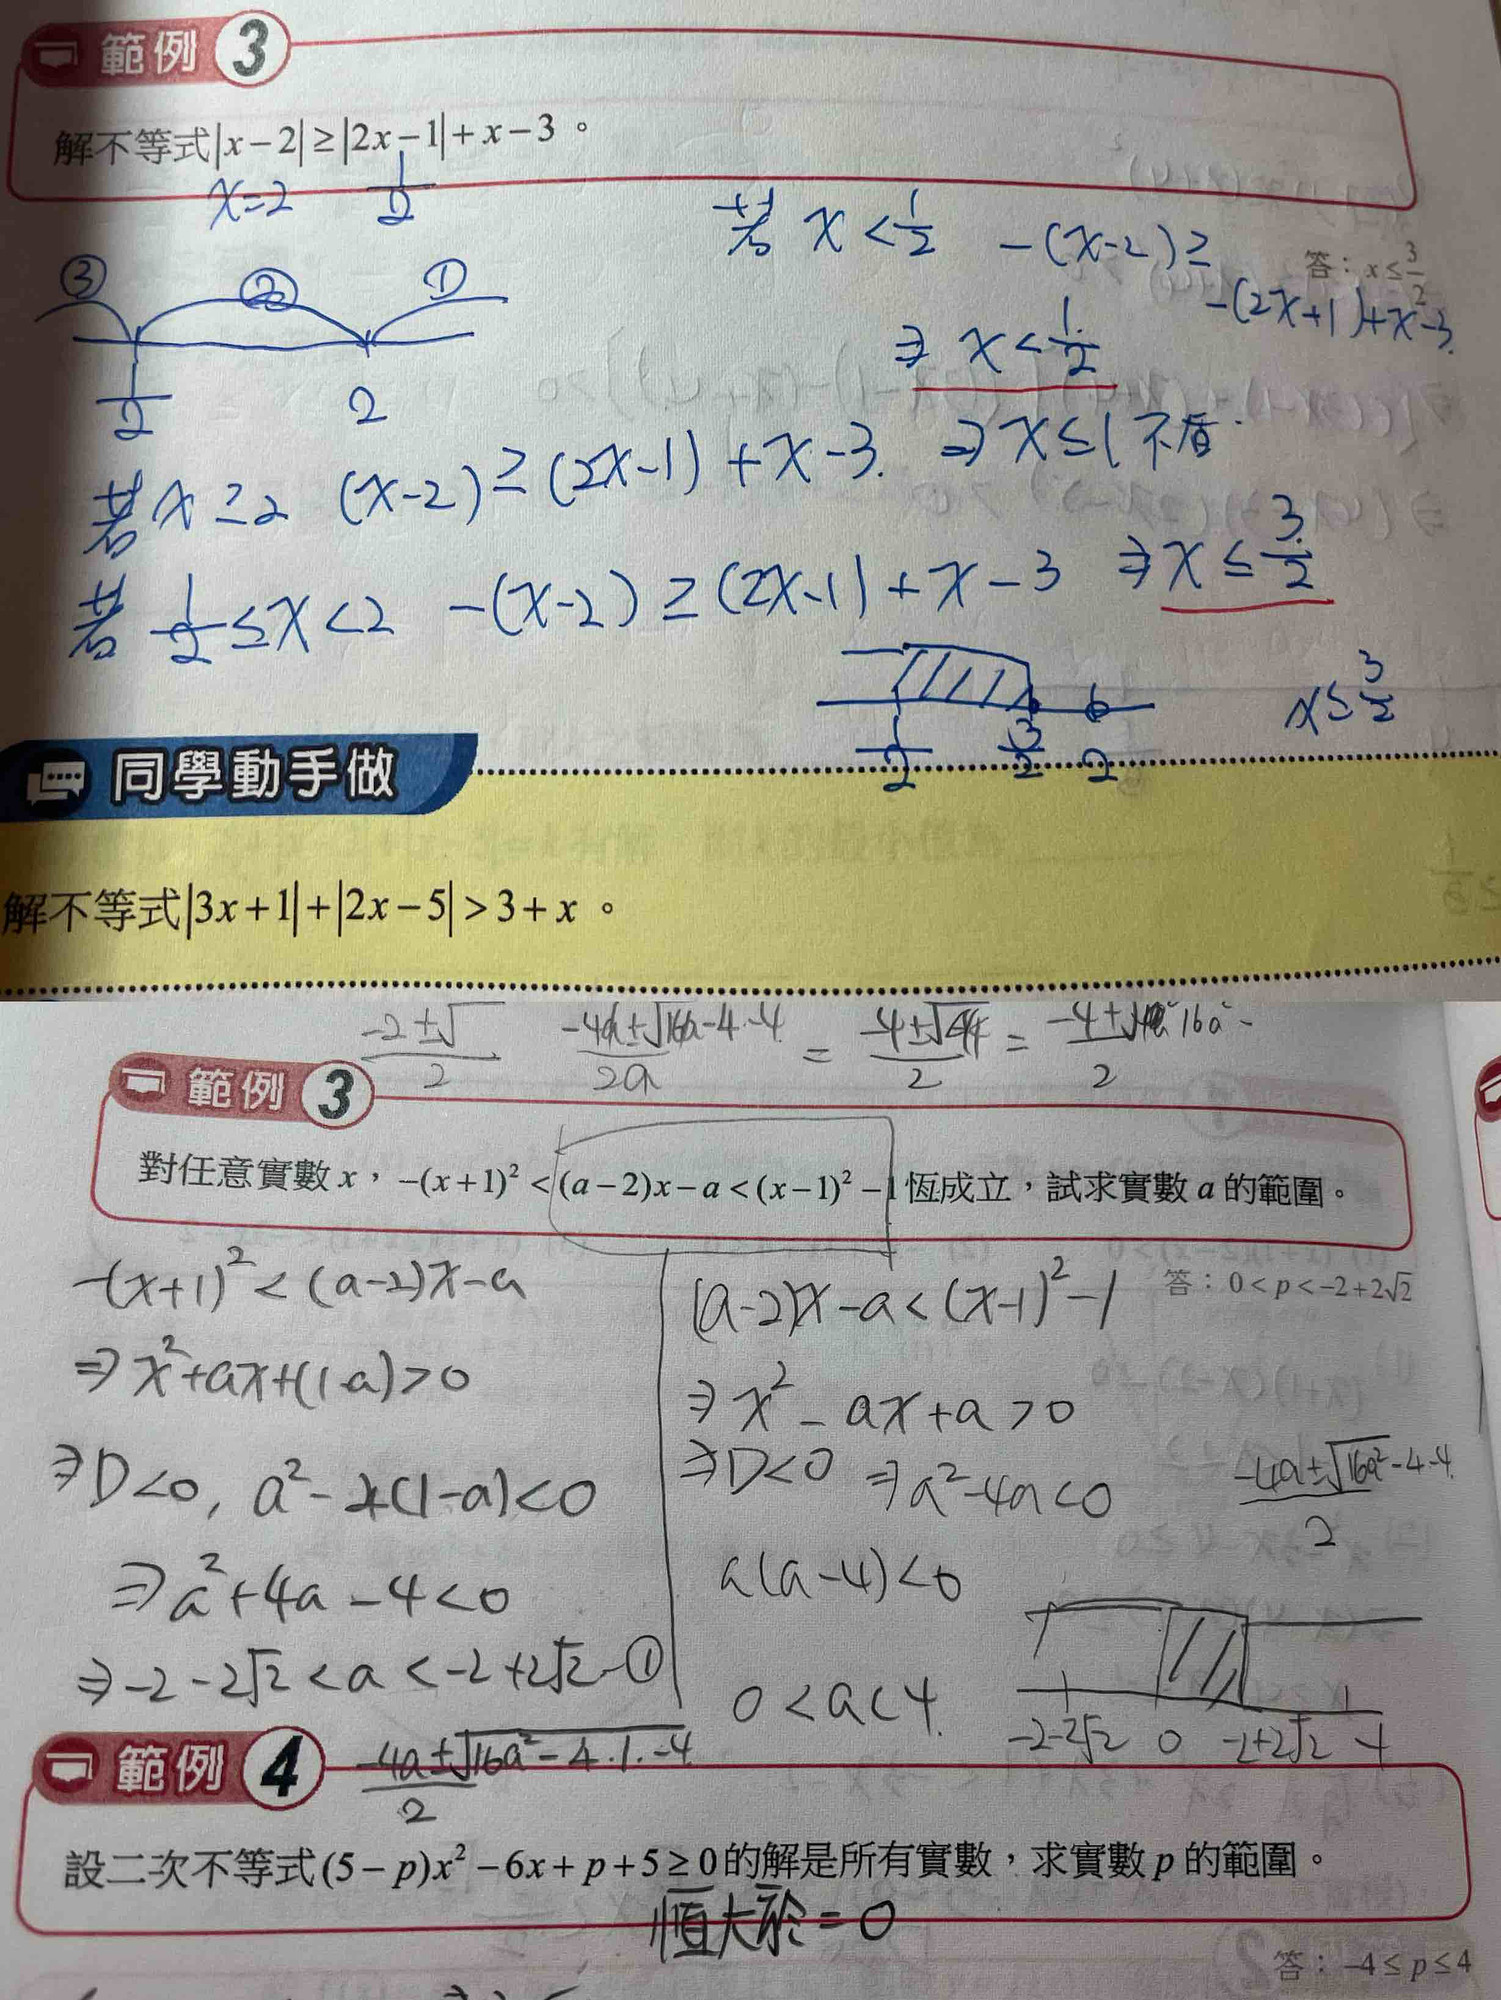 範例 3
解不等式|x-2|≥|2x-1|+x-3。
x=2 1/2
答：x≤3/2
若 x<1/2 -(x-2)≥
-(2x+1)+x-3.
⇒ x<1/2
③ ② ①
1/2 2
若 x≥2 (x-2)≥(2x-1)+x-3. ⇒x≤1 不盾.
若 1/2≤x<2 -(x-2)≥(2x-1)+x-3 ⇒x≤3/2
1/2 3/2 2
x≤3/2
同學動手做
解不等式|3x+1|+|2x-5|>3+x。
範例 3
對任意實數x，-(x+1)²<(a-2)x-a<(x-1)²-1恆成立，試求實數a的範圍。
答：0<p<-2+2√2
-(x+1)²<(a-2)x-a
⇒x²+ax+(1-a)>0
⇒D<0, a²-4(1-a)<0
⇒a²+4a-4<0
⇒-2-2√2<a<-2+2√2-①
(a-2)x-a<(x-1)²-1
⇒x²-ax+a>0
⇒D<0 ⇒a²-4a<0
a(a-4)<0
0<a<4.
(-4a±√16a²-4·-4)/2
-2-2√2 0 -2+2√2 4
範例 4
(-4a±√16a²-4·1·-4)/2
設二次不等式(5-p)x²-6x+p+5≥0的解是所有實數，求實數p的範圍。
恆大於=0
答：-4≤p≤4